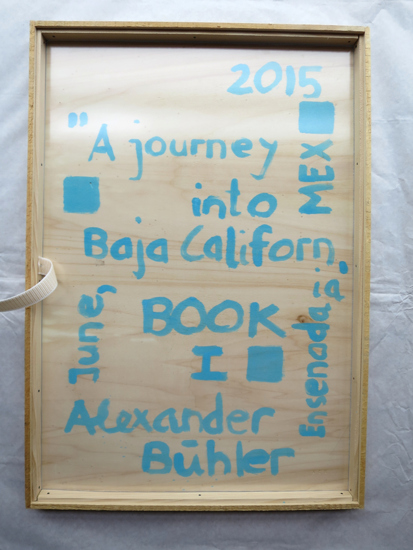 2015
"A journey
into
Baja Californ
i-
a"
MEX
BOOK
I
June,
Ensenada
Alexander
Bühler